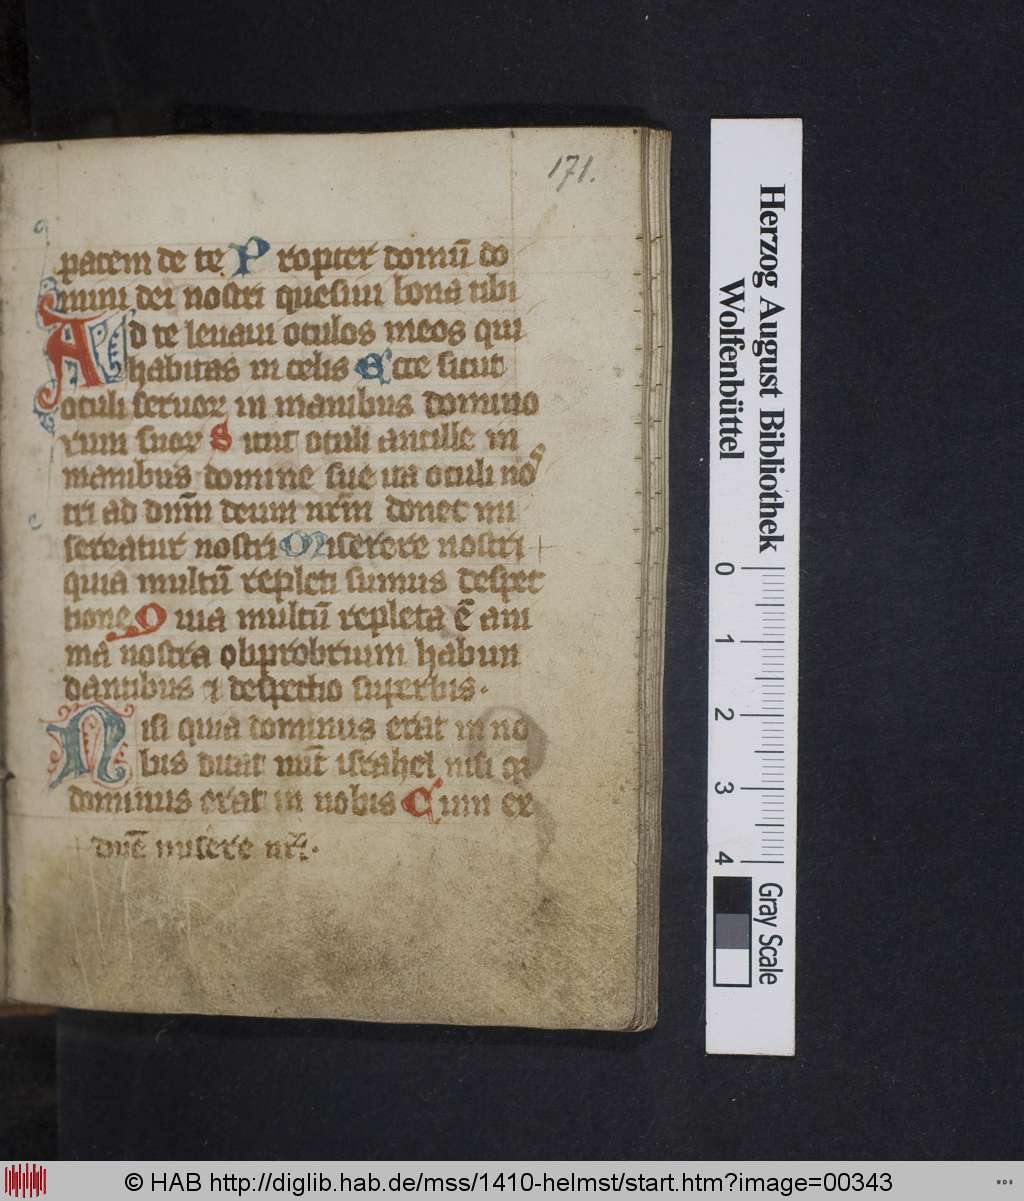 171.
pacem de te Propter domū do
mini dei nostri quesiui bona tibi
Ad te leuaui oculos meos qui
habitas in celis Ecce sicut
oculi seruoꝝ in manibus domino
rum suoꝝ Sicut oculi ancille in
manibus domine sue ita oculi nos
tri ad dnm̄ deum nrm̄ donec mi
sereatur nostri Miserere nostri
quia multū repleti sumus despec
tione Quia multū repleta ē ani
ma nostra obprobrium habun
dantibus ⁊ despectio superbis.
Nisi quia dominus erat in no
bis dicat nūc israhel nisi qꝛ
dominus erat in nobis Cum ex
dn̄e misere nr̄i.
Herzog August Bibliothek
Wolfenbüttel
0 1 2 3 4
Gray Scale
© HAB http://diglib.hab.de/mss/1410-helmst/start.htm?image=00343